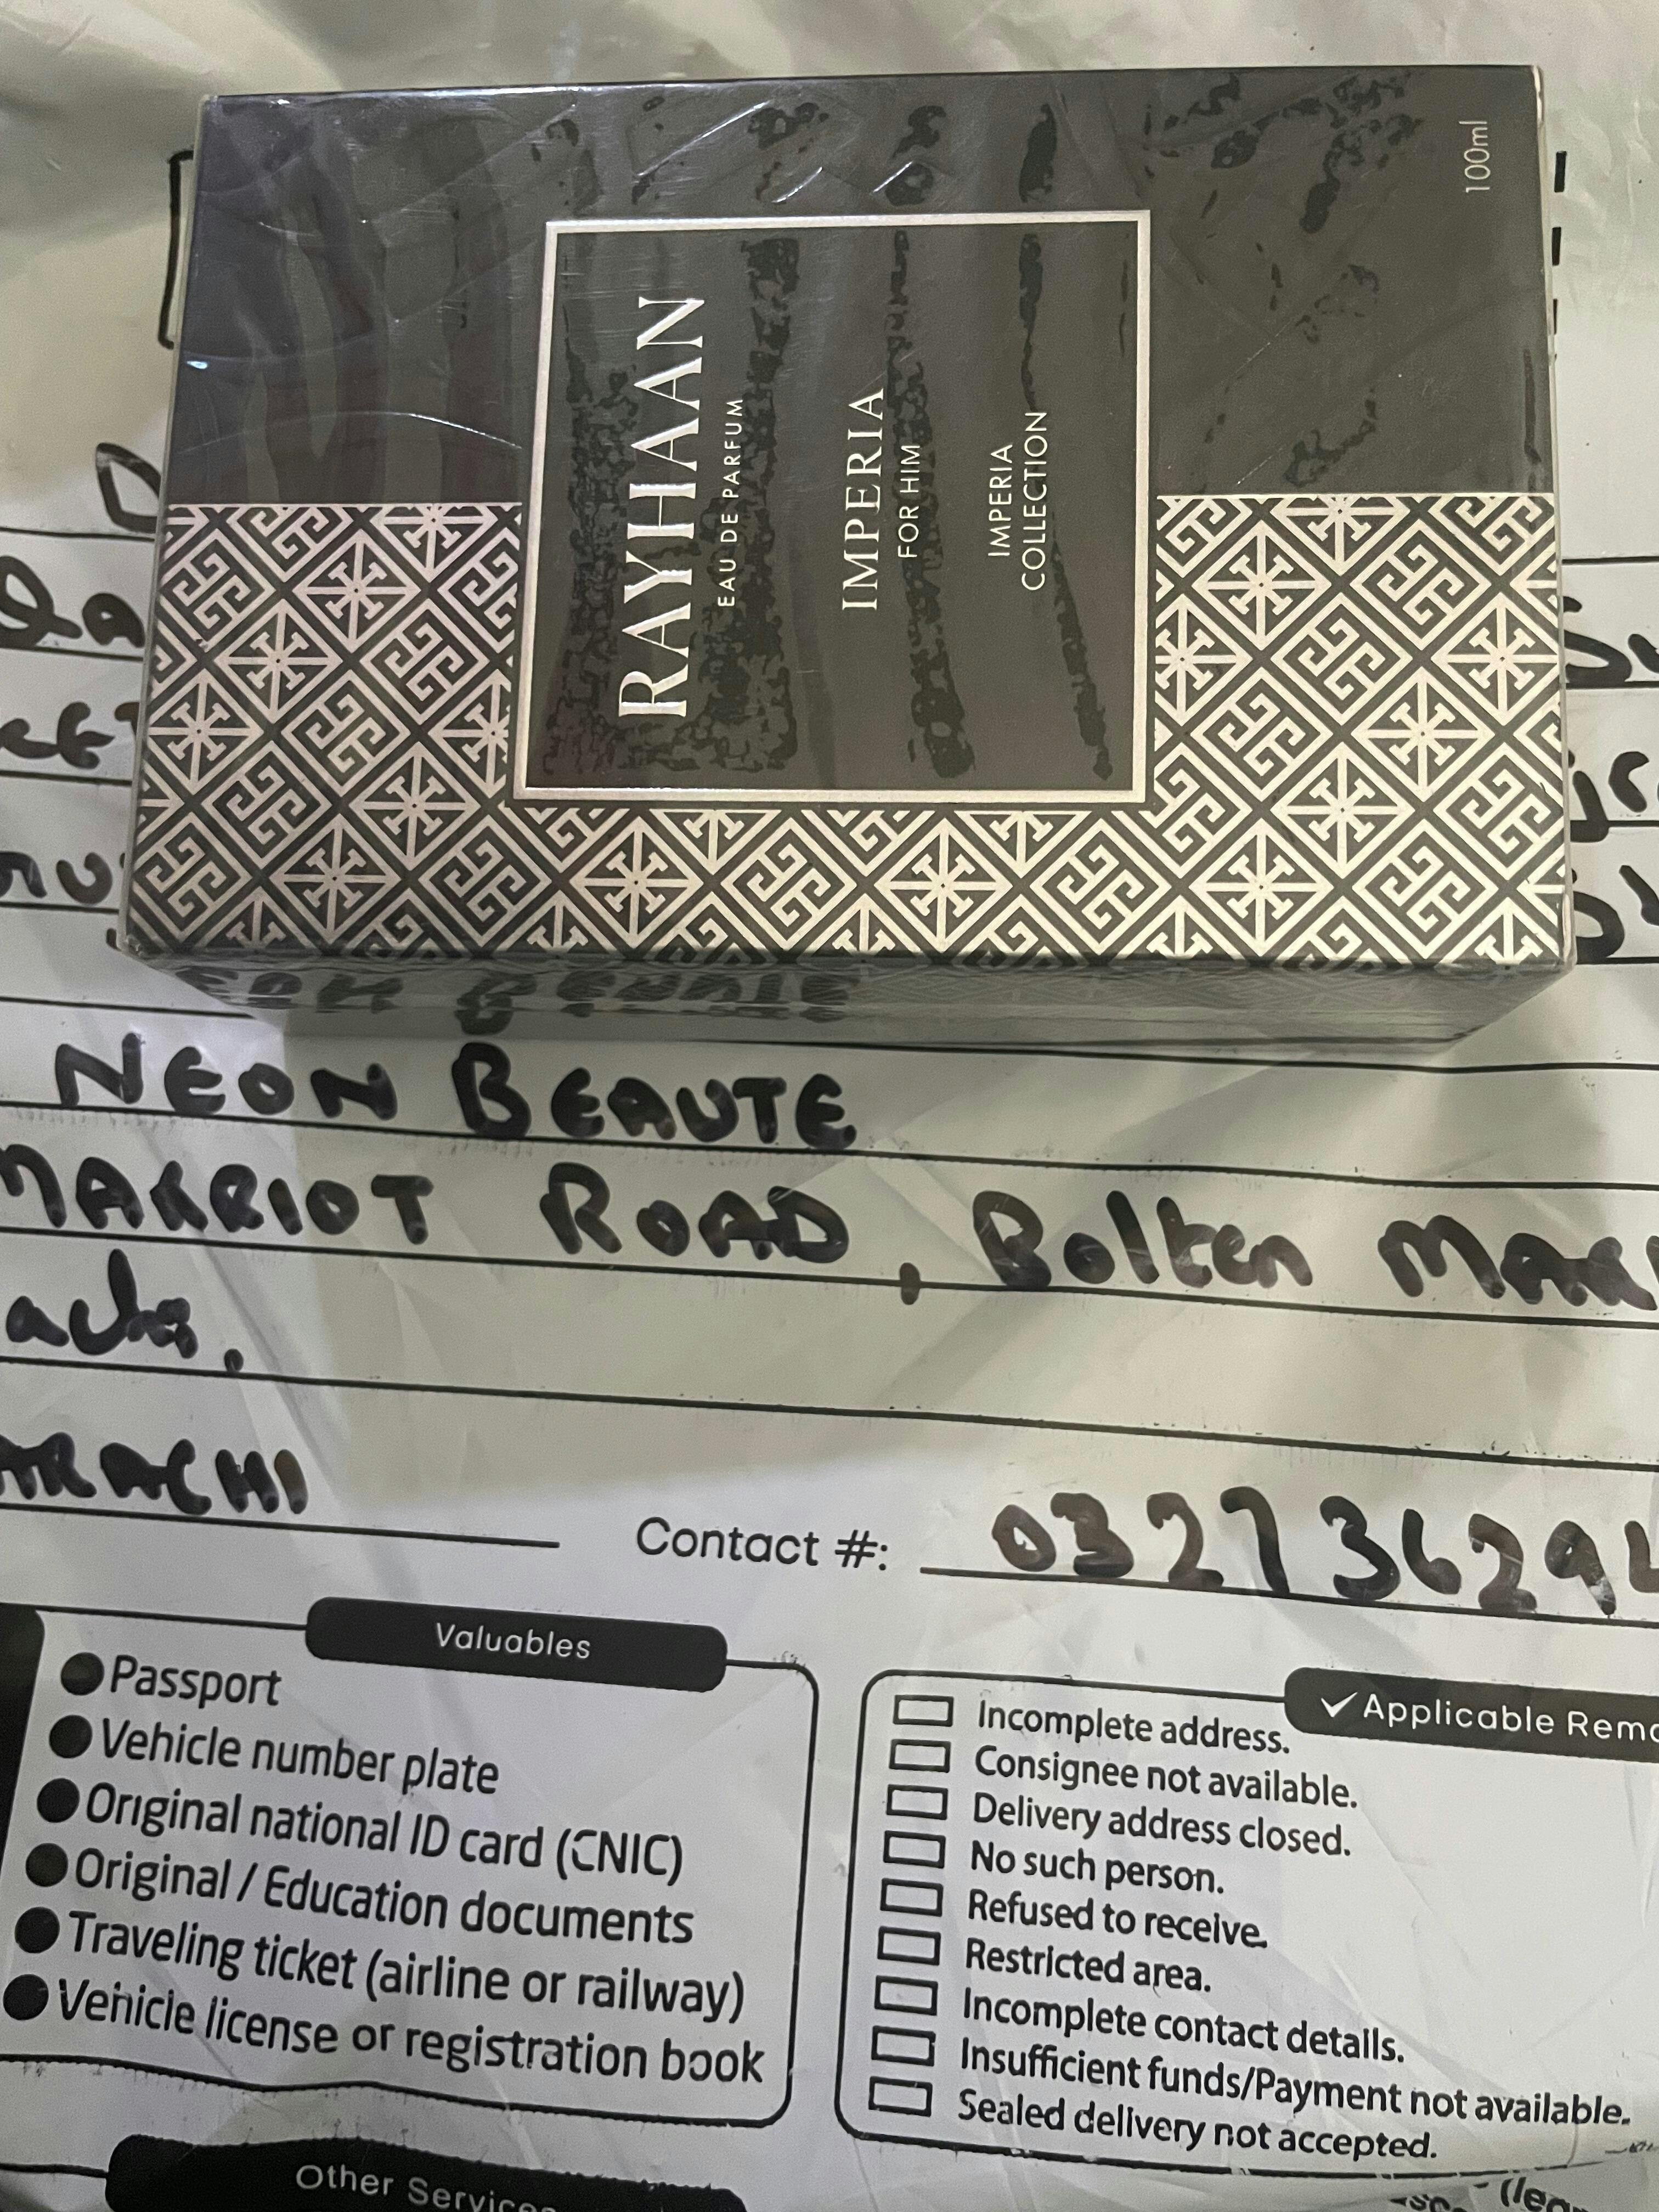 RAYHAAN
EAU DE PARFUM
IMPERIA
FOR HIM
IMPERIA
COLLECTION
100ml
NEON BEAUTE
MARRIOT ROAD, Bolten
Contact #: 03273629
Valuables
Passport
Vehicle number plate
Original national ID card (CNIC)
Original / Education documents
Traveling ticket (airline or railway)
Vehicle license or registration book
✓ Applicable
Incomplete address.
Consignee not available.
Delivery address closed.
No such person.
Refused to receive.
Restricted area.
Incomplete contact details.
Insufficient funds/Payment not available.
Sealed delivery not accepted.
Other Services